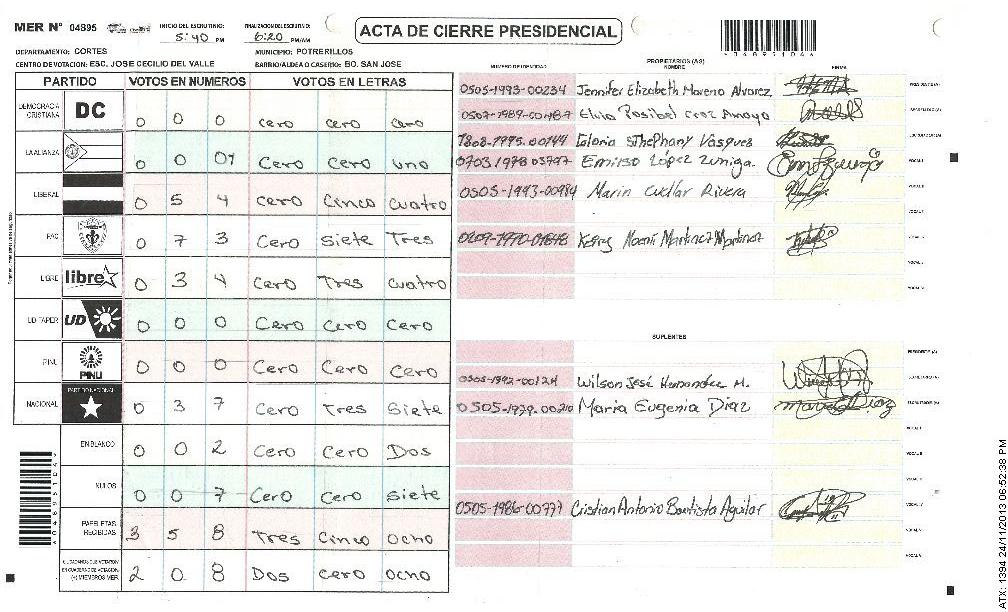 MER Nº 04895
INICIO DEL ESCRUTINIO: 5:40 PM
FINALIZACION DEL ESCRUTINIO: 6:20 PM/AM
ACTA DE CIERRE PRESIDENCIAL
DEPARTAMENTO: CORTES
MUNICIPIO: POTRERILLOS
CENTRO DE VOTACION: ESC. JOSE CECILIO DEL VALLE
BARRIO/ALDEA O CASERIO: BO. SAN JOSE
PARTIDO VOTOS EN NUMEROS VOTOS EN LETRAS
DEMOCRACIA CRISTIANA DC 0 0 0 cero cero cero
LA ALIANZA 0 0 01 Cero Cero uno
LIBERAL 0 5 4 cero Cinco cuatro
PAC 0 7 3 Cero siete Tres
LIBRE libre 0 3 4 Cero Tres cuatro
UD FAPER UD 0 0 0 Cero Cero Cero
PINU PINU 0 0 0 Cero Cero Cero
NACIONAL PARTIDO NACIONAL 0 3 7 Cero Tres Siete
EN BLANCO 0 0 2 Cero Cero Dos
NULOS 0 0 7 Cero Cero siete
PAPELETAS RECIBIDAS 3 5 8 Tres Cinco ocho
CIUDADANOS QUE VOTARON EN CUADERNO DE VOTACION (+) MIEMBROS MER 2 0 8 Dos cero ocho
NUMERO DE IDENTIDAD
PROPIETARIOS (AS)
NOMBRE
FIRMA
0505-1993-00234 Jennifer Elizabeth Moreno Alvarez
0507-1989-00487 Elvia Posibel cruz Amaya
Gloria sthephany Vasquez
0703 1978 03797 Emirso López Zuniga.
0505-1993-00984 Marin Cuellar Rivera
Martinez Martinez
SUPLENTES
0505-1992-00124 Wilson José Hernandez M.
0505-1979-00210 Maria Eugenia Diaz
0505-1986-00777 Cristian Antonio Bautista Aguilar
ATX: 1394 24/11/2013 06:52:38 PM